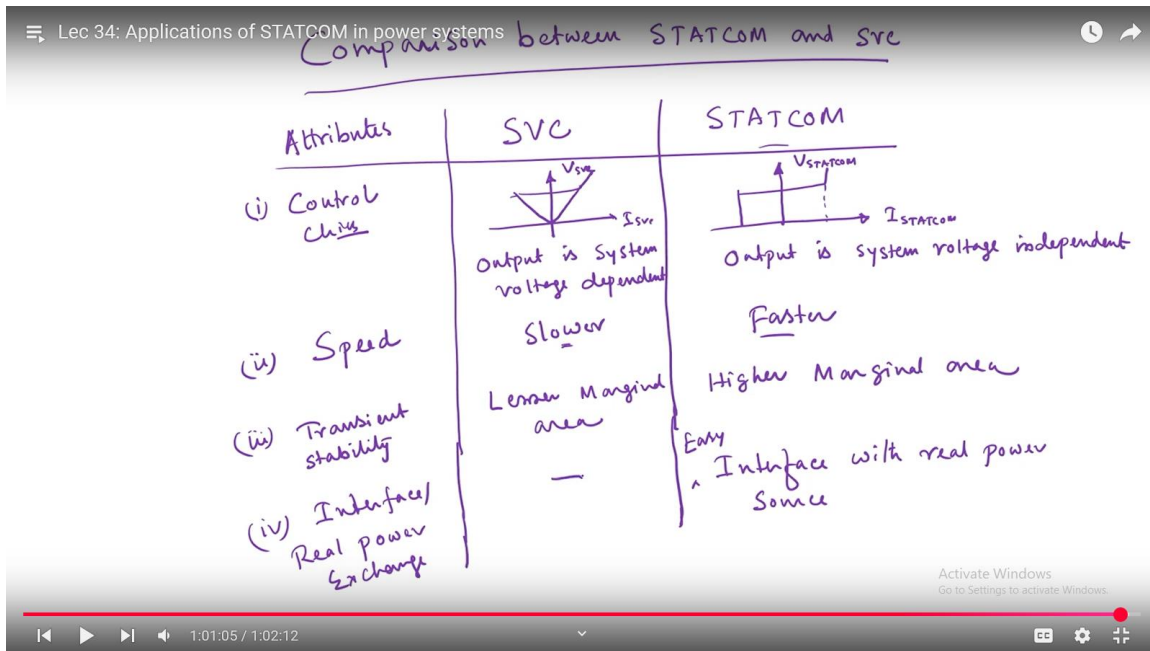 Lec 34: Applications of STATCOM in power systems
Comparison between STATCOM and SVC
Attributes
SVC
STATCOM
(i) Control
VSVC
ISVC
VSTATCOM
ISTATCOM
Output is system
voltage dependent
Output is system voltage independent
(ii) Speed
Slower
Faster
(iii) Transient
stability
Lesser Marginal
area
Higher Marginal area
(iv) Interface/
Real power
Exchange
—
Easy
Interface with real power
Source
Activate Windows
Go to Settings to activate Windows.
1:01:05 / 1:02:12
CC